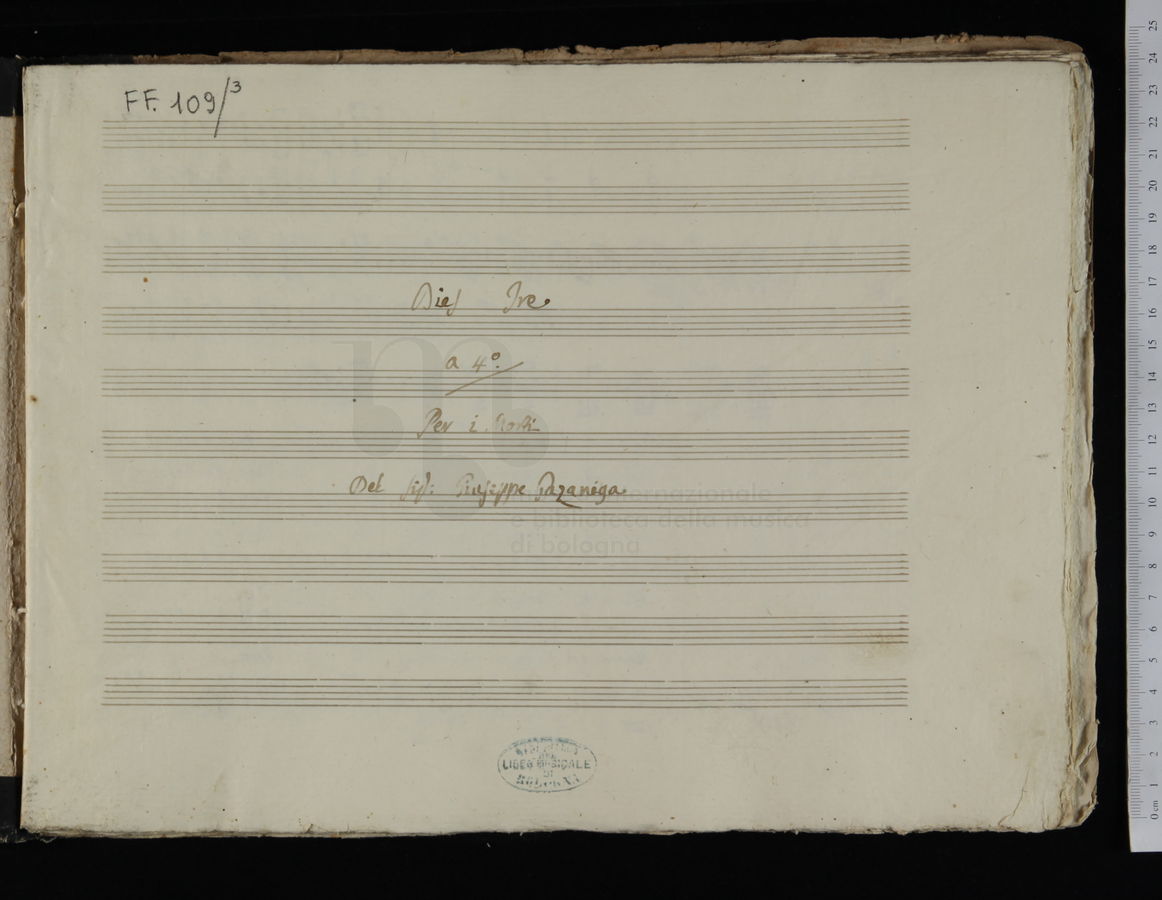 FF. 109/3
Dies Ire
a 4º.
Per i Morti
Del Sigr: Giuseppe Gazaniga
internazionale
e biblioteca della musica
di bologna
LICEO MUSICALE
DI
BOLOGNA
0 cm 1 2 3 4 5 6 7 8 9 10 11 12 13 14 15 16 17 18 19 20 21 22 23 24 25